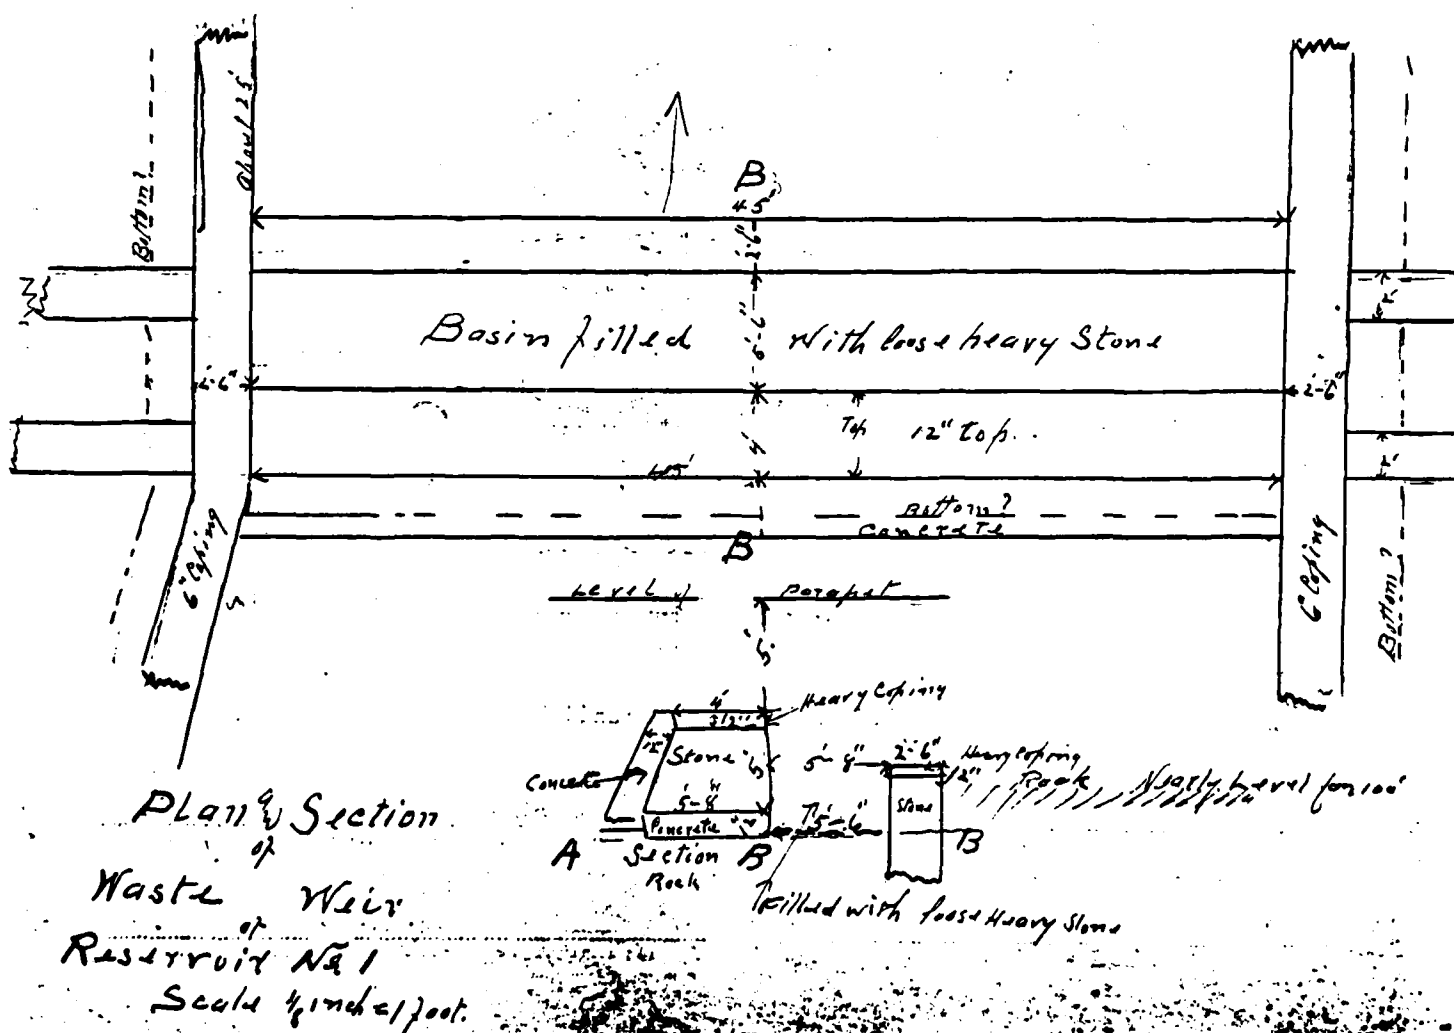 About 25'
Bottom?
B
45'
2'-6"
Basin filled
5'-6"
With loose heavy Stone
2'
2'-6"
2'-6"
4'
Top
12" top.
45'
2'
Bottom?
Concrete
B
6" Coping
6" Coping
Bottom?
Level of Parapet
5'
4'
Heavy Coping
12"
Stone
5'
Concrete
5'-8"
Concrete
A
Section
B
Rock
5'-6"
5'-8"
2'-6"
Heavy Coping
12"
Rock
Nearly Level for 100'
Stone
B
Filled with loose Heavy Stone
Plan & Section
of
Waste Weir
of
Reservoir No 1
Scale 1/8 inch = 1 foot.